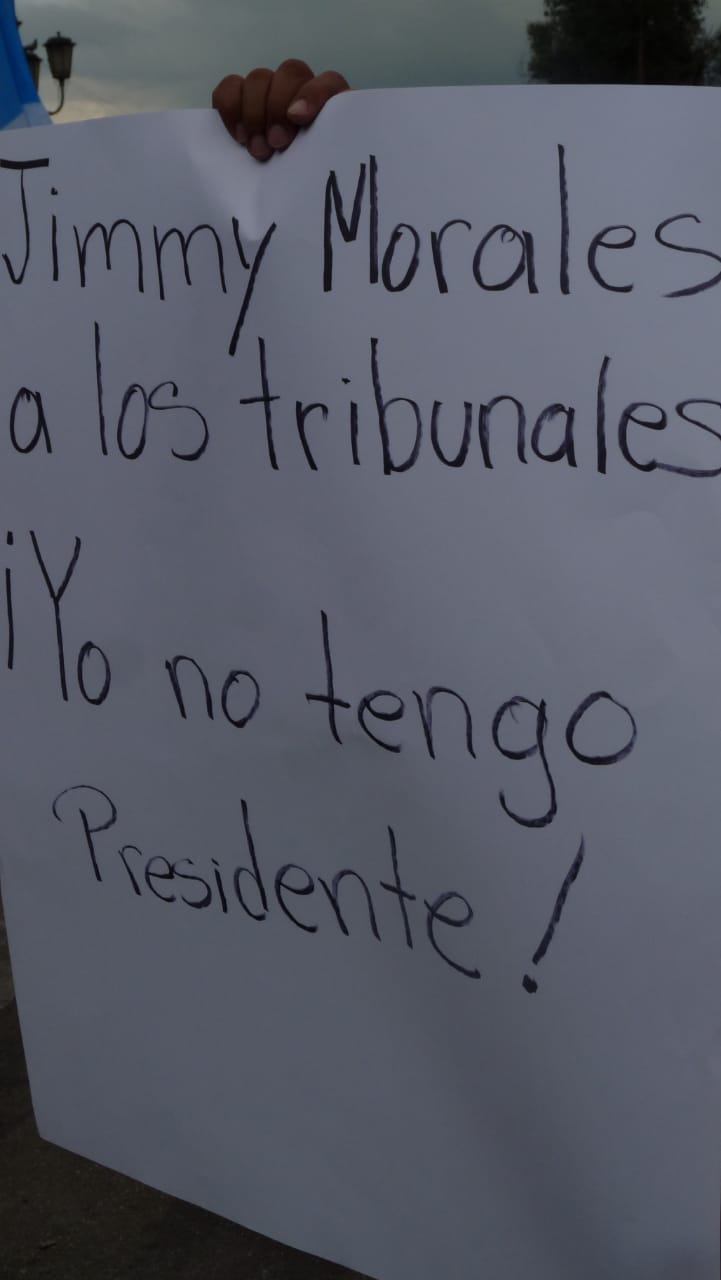 Jimmy Morales
a los tribunales
¡Yo no tengo
Presidente!